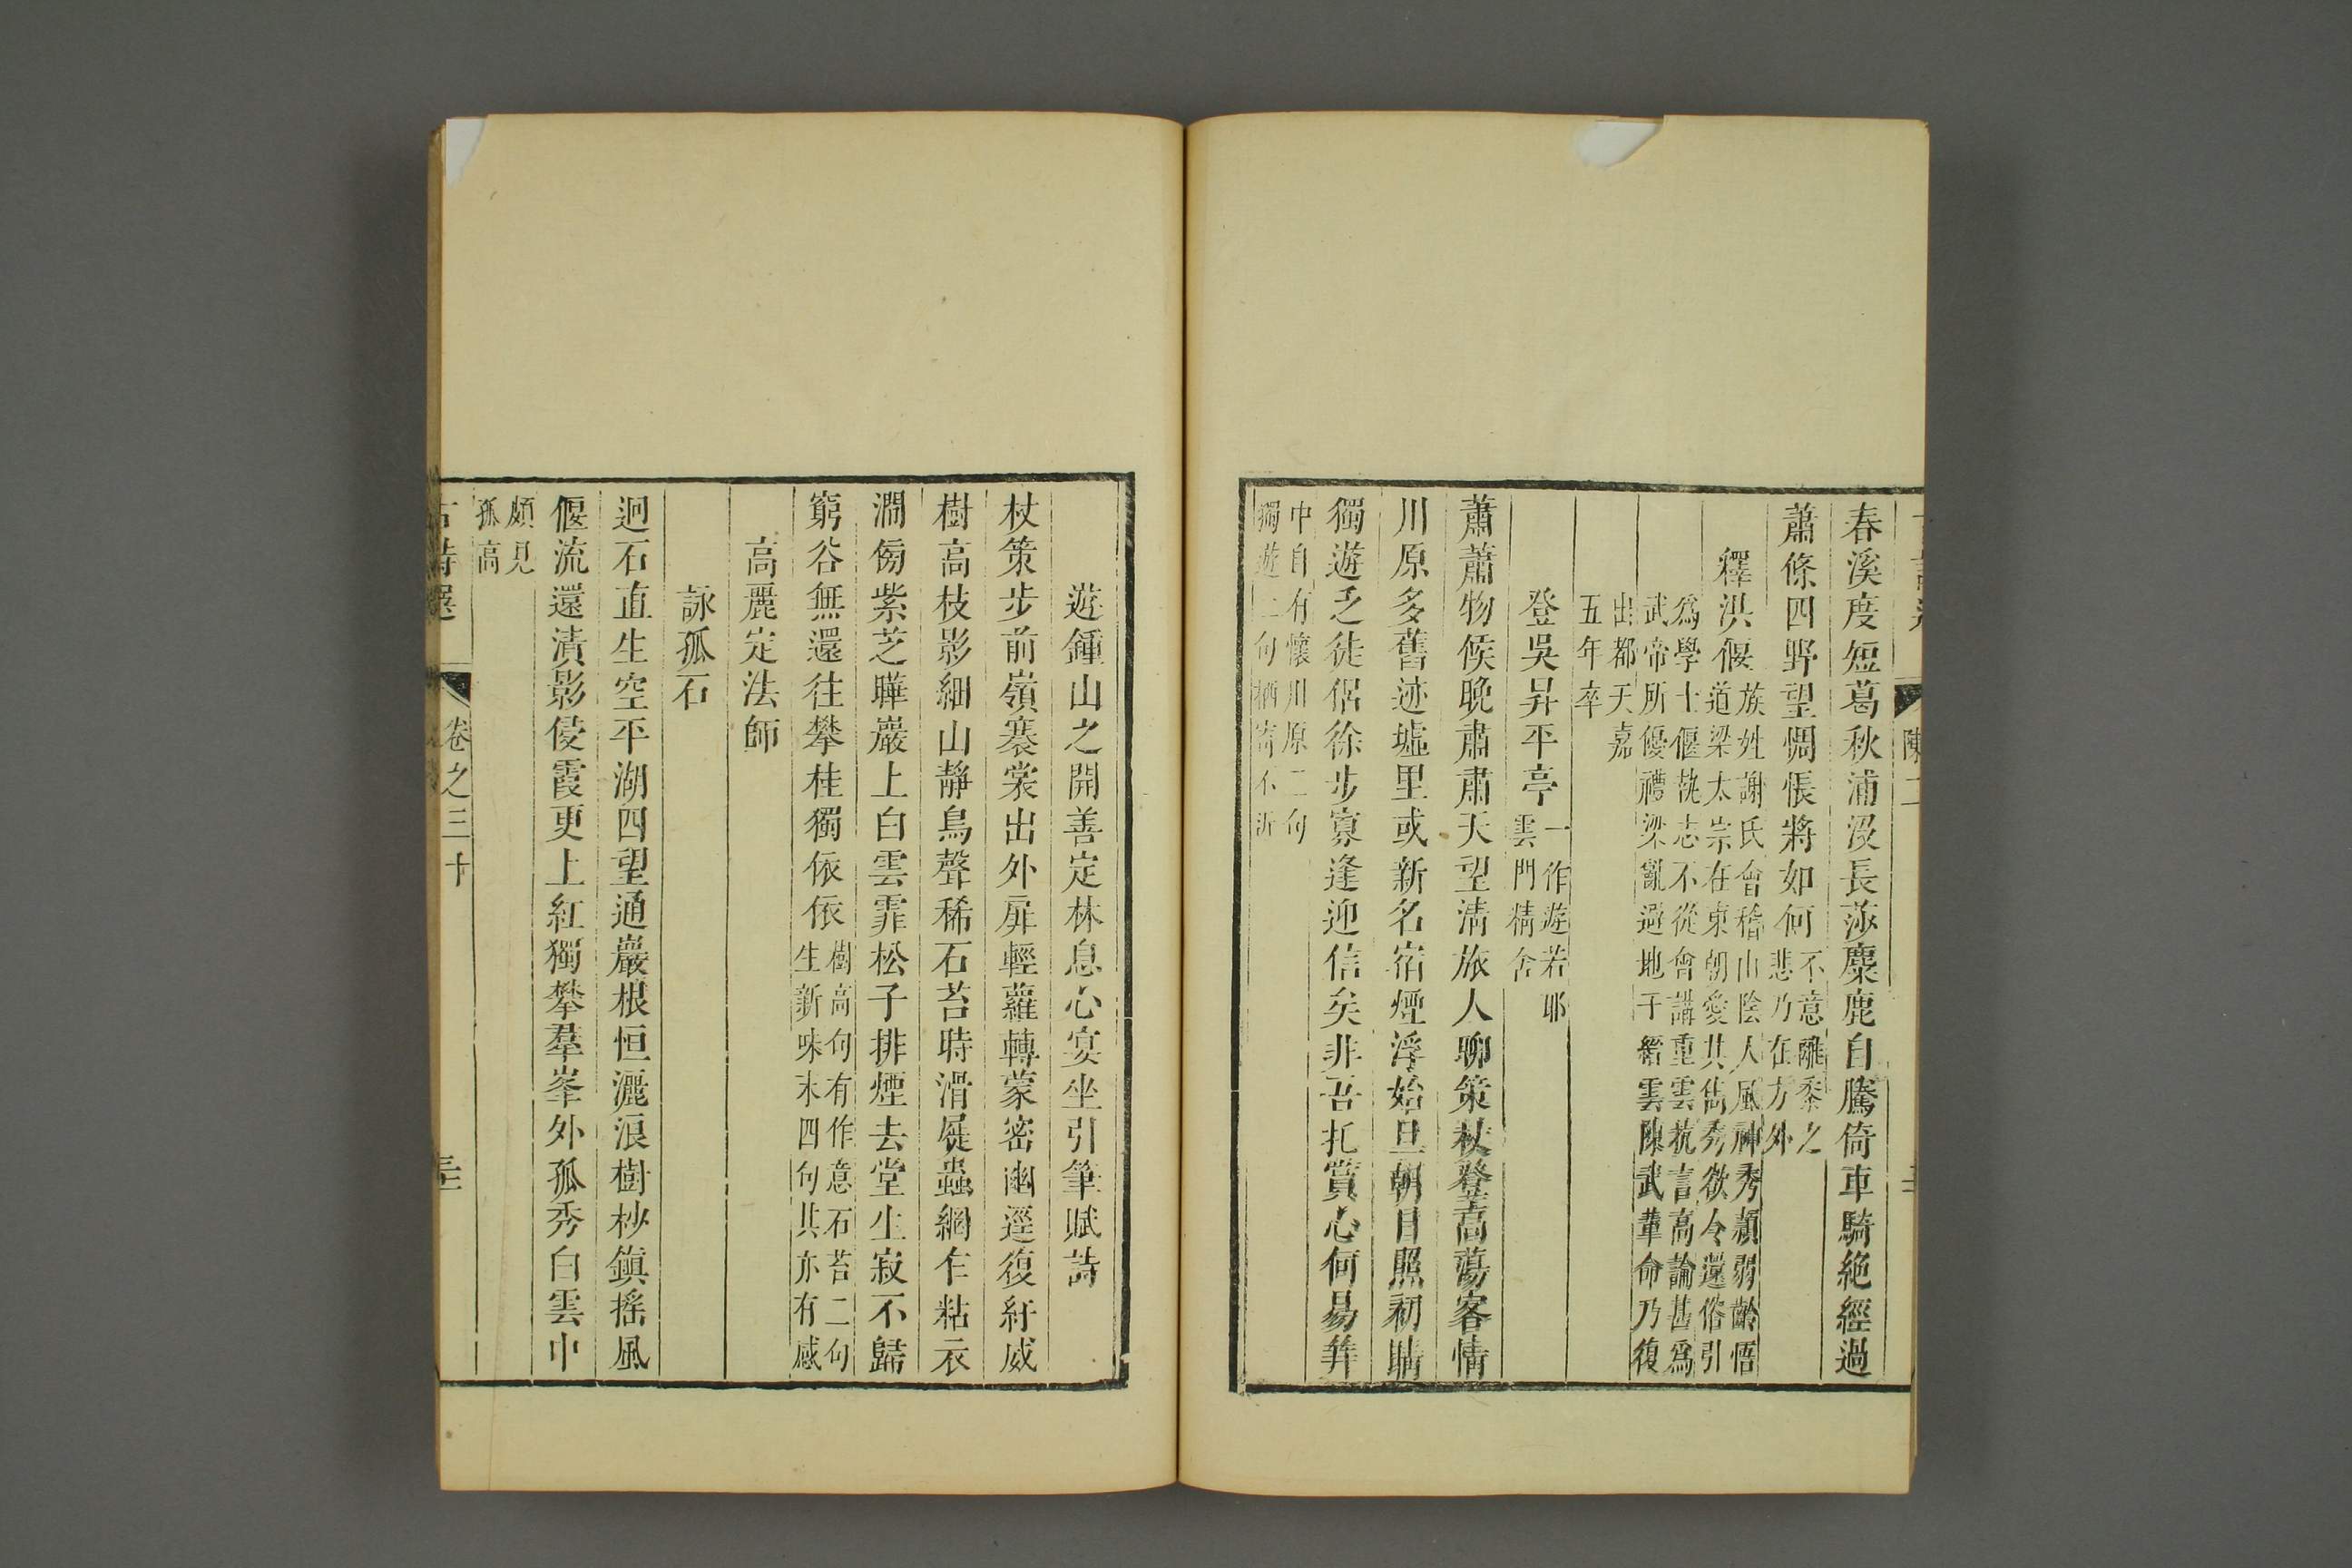 春溪度短葛秋浦沒長莎麋鹿自騰倚車騎絕經過
蕭條四野望惆悵將如何
不意離黍之
悲乃在方外
釋洪偃
族姓謝氏會稽山陰人風神秀穎弱齡悟
道梁太宗在東朝愛其儁秀欲令還俗引
爲學士偃執志不從會講重雲抗言高論甚爲
武帝所優禮梁亂避地于縉雲陳武革命乃復
出都天嘉
五年卒
登吳昇平亭
一作遊若耶
雲門精舍
蕭蕭物候晚肅肅天望清旅人聊策杖登高蕩客情
川原多舊迹墟里或新名宿煙浮始旦朝日照初晴
獨遊乏徒侶徐步寡逢迎信矣非吾托賞心何易幷
中自有懷川原二句
獨遊二句栖寄不沂
遊鍾山之開善定林息心宴坐引筆賦詩
杖策步前嶺褰裳出外扉輕蘿轉蒙密幽逕復紆威
樹高枝影細山靜鳥聲稀石苔時滑屣蟲網乍粘衣
澗傍紫芝曄巖上白雲霏松子排煙去堂生寂不歸
窮谷無還往攀桂獨依依
樹高句有作意石苔二句
生新味末四句其亦有感
高麗定法師
詠孤石
迥石直生空平湖四望通巖根恒灑浪樹杪鎭搖風
偃流還漬影侵霞更上紅獨攀羣峯外孤秀白雲中
頗見
孤高
古詩選
卷之三十